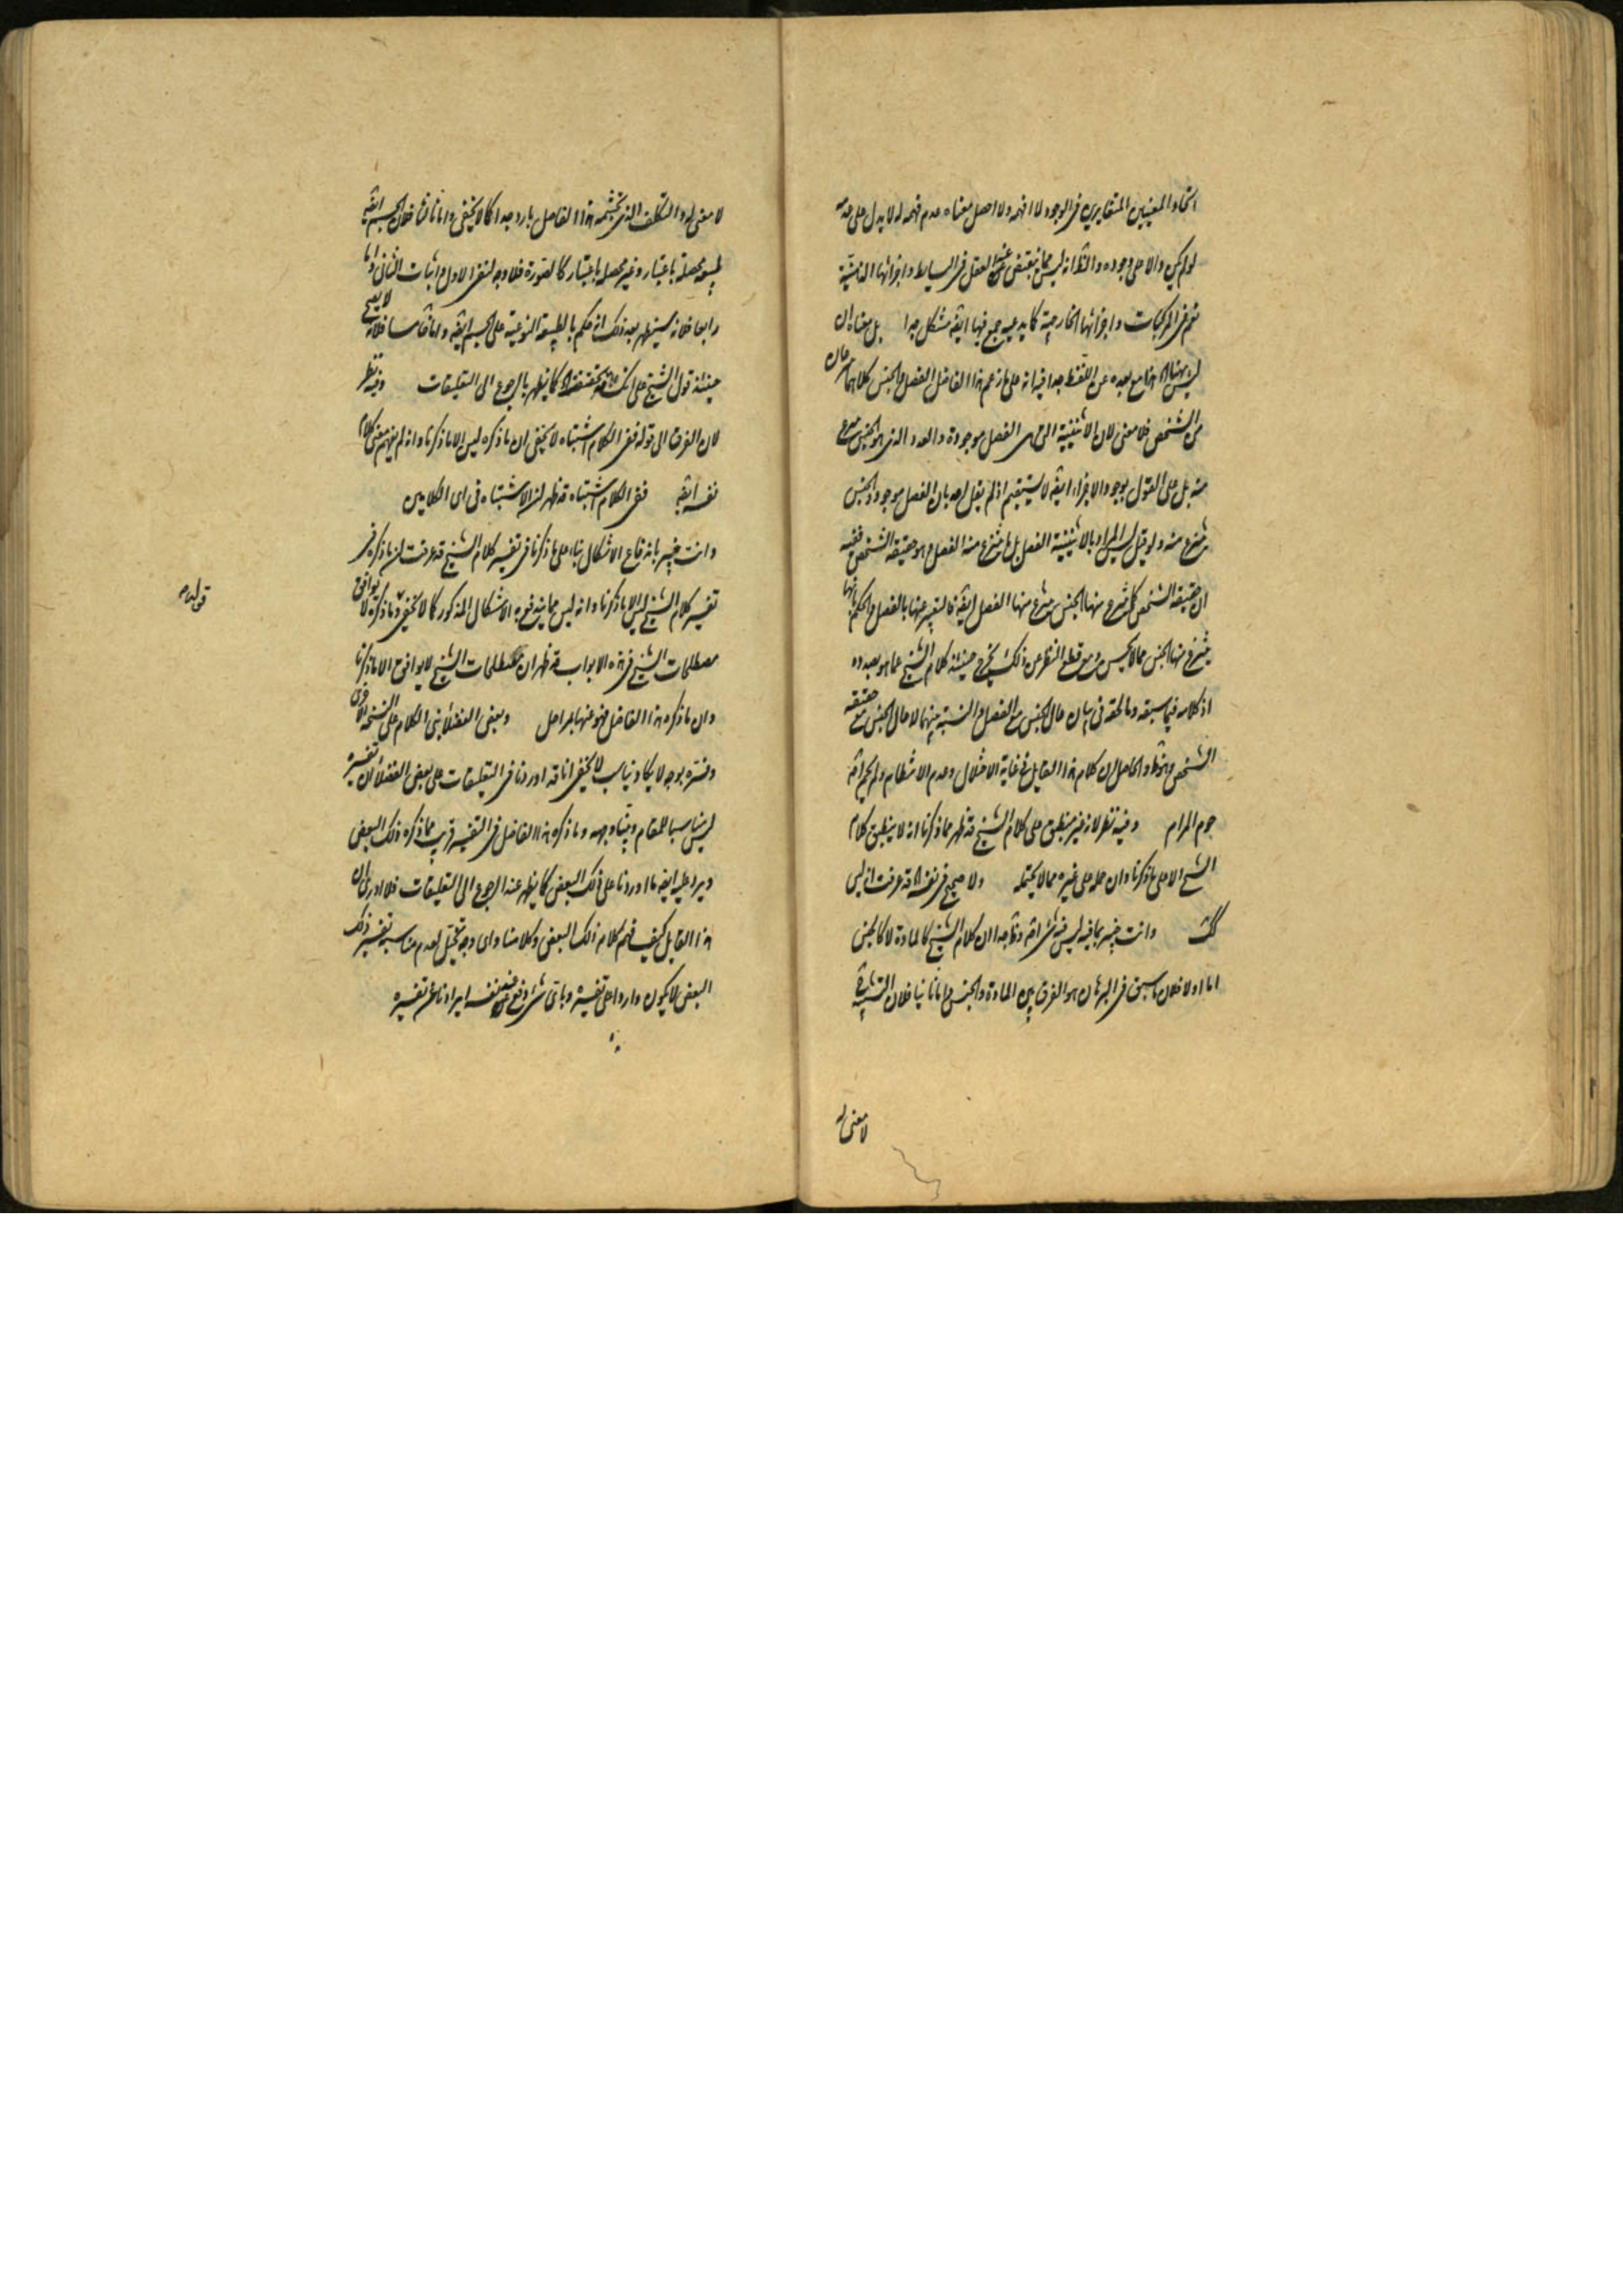 اتحاد المعنيين المتغايرين في الوجود لا افهمه ولا احصل معناه عدم فهمه له لا يدل على عدمه
لو لم يكن والا على وجوده والظ انه ليس مما ينقبض عنه العقل في البسايط واجزائها الذهنية
نعم في المركبات واجزائها الخارجية كما يدعيه جمع فيها ايض مشكل جدا بل معناه ان
ليس هذا مع بعده عن اللفظ جدا فيه انه على ما زعم هذا الفاضل الفصل والجنس كلاهما
من الشخص فلا معنى لان الاثنينية التي هي الفصل موجودة والعدد الذي هو الجنس منتزع
منه بل على القول بوجود الاجزاء ايض لا يستقيم اذ لم يقل احد بان الفصل موجود والجنس
منتزع منه ولو قيل ليس المراد بالاثنينية الفصل بل ما ينتزع منه الفصل وهو حقيقة الشخص ففيه
ان حقيقة الشخص كما ينتزع منها الجنس ينتزع منها الفصل ايض فالتعبير عنها بالفصل والحكم بانها
ينتزع منها الجنس مما لا يحسن ومع قطع النظر عن ذلك يخرج حينئذ كلام الشيخ عما هو بصدده
اذ كلامه فيما سبقه وما لحقه في بيان حال الجنس مع الفصل والنسبة بينهما لا حال الجنس مع حقيقة
الشخص وهو ظ والحاصل ان كلام هذا القايل في غاية الاختلال وعدم الانتظام ولم يحم
حوم المرام وفيه نظر لانه غير منطبق على كلام الشيخ قد ظهر مما ذكرنا انه لا ينطبق كلام
الشيخ الا على ما ذكرنا وان حمله على غيره مما لا يحتمله ولا صحيح في نفسه قد عرفت انه ليس
كك وانت خبير بما فيه ليس فيه شي اصلا ان كلام الشيخ كالمادة لا كالجنس
اما اولا فلان ما سبق في البرهان هو الفرق بين المادة والجنس واما ثانيا فلان التشبيه
لا معنى له
لا معنى له والتكلف الذي تجشمه هذا الفاضل بارد جدا كما لا يخفى واما ثالثا فلان الجسم ايض
طبيعة محصلة باعتبار وغير محصلة باعتبار كالصورة فلا وجه لنفي الاول واثبات الثاني واما
رابعا فلانه سيظهر بعد ذلك انه حكم بالطبيعة النوعية على الجسم ايض واما خامسا فلانه لا يصح
حينئذ قول الشيخ على انك قد تحققت كما يظهر بالرجوع الى التعليقات وفيه نظر
لان الفرق الى قوله ففي الكلام اشتباه لا يخفى ان ما ذكره ليس الا ما ذكرنا وانه لم يفهم معنى كلام
نفسه ايض ففي الكلام اشتباه قد ظهر ان الاشتباه في اي الكلامين
وانت خبير باندفاع الاشكال بناء على ما ذكرنا في تفسير كلام الشيخ قد عرفت ان ما ذكره في
تفسير كلام الشيخ ليس الا ما ذكرنا وانه ليس مما يندفع به الاشكال المذكور كما لا يخفى وما ذكره لا يوافق
مصطلحات الشيخ في هذه الابواب قد ظهر ان مصطلحات الشيخ لا يوافق الا ما ذكرنا
وان ما ذكره هذا الفاضل فهو عنها بمراحل وبعض الفضلاء بنى الكلام على النسخة الاخرى
وفسره بوجه لا يكاد يناسب لا يخفى انا قد اوردنا في التعليقات على بعض الفضلاء ان تفسيره
ليس مناسبا للمقام وبينا وجهه وما ذكره هذا الفاضل في التفسير قريب مما ذكره ذلك البعض
ويرد عليه ايض ما اوردنا على ذلك البعض كما يظهر عند الرجوع الى التعليقات فلا ادري ان
هذا القايل كيف فهم كلام ذلك البعض وكلامنا واي وجه تخيل لعدم مناسبة تفسير ذلك
البعض لا يكون واردا على تفسيره وباي شي دفع عن نفسه ايرادنا على تفسيره
قوله